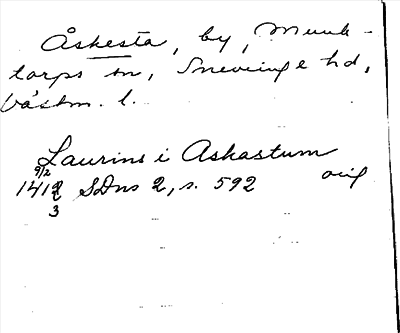 Åskesta, by, Munk-
torps sn, Snevringe hd,
Västm. l.
Laurins i Askastum
9/2
1412 SDns 2, s. 592 orig
3